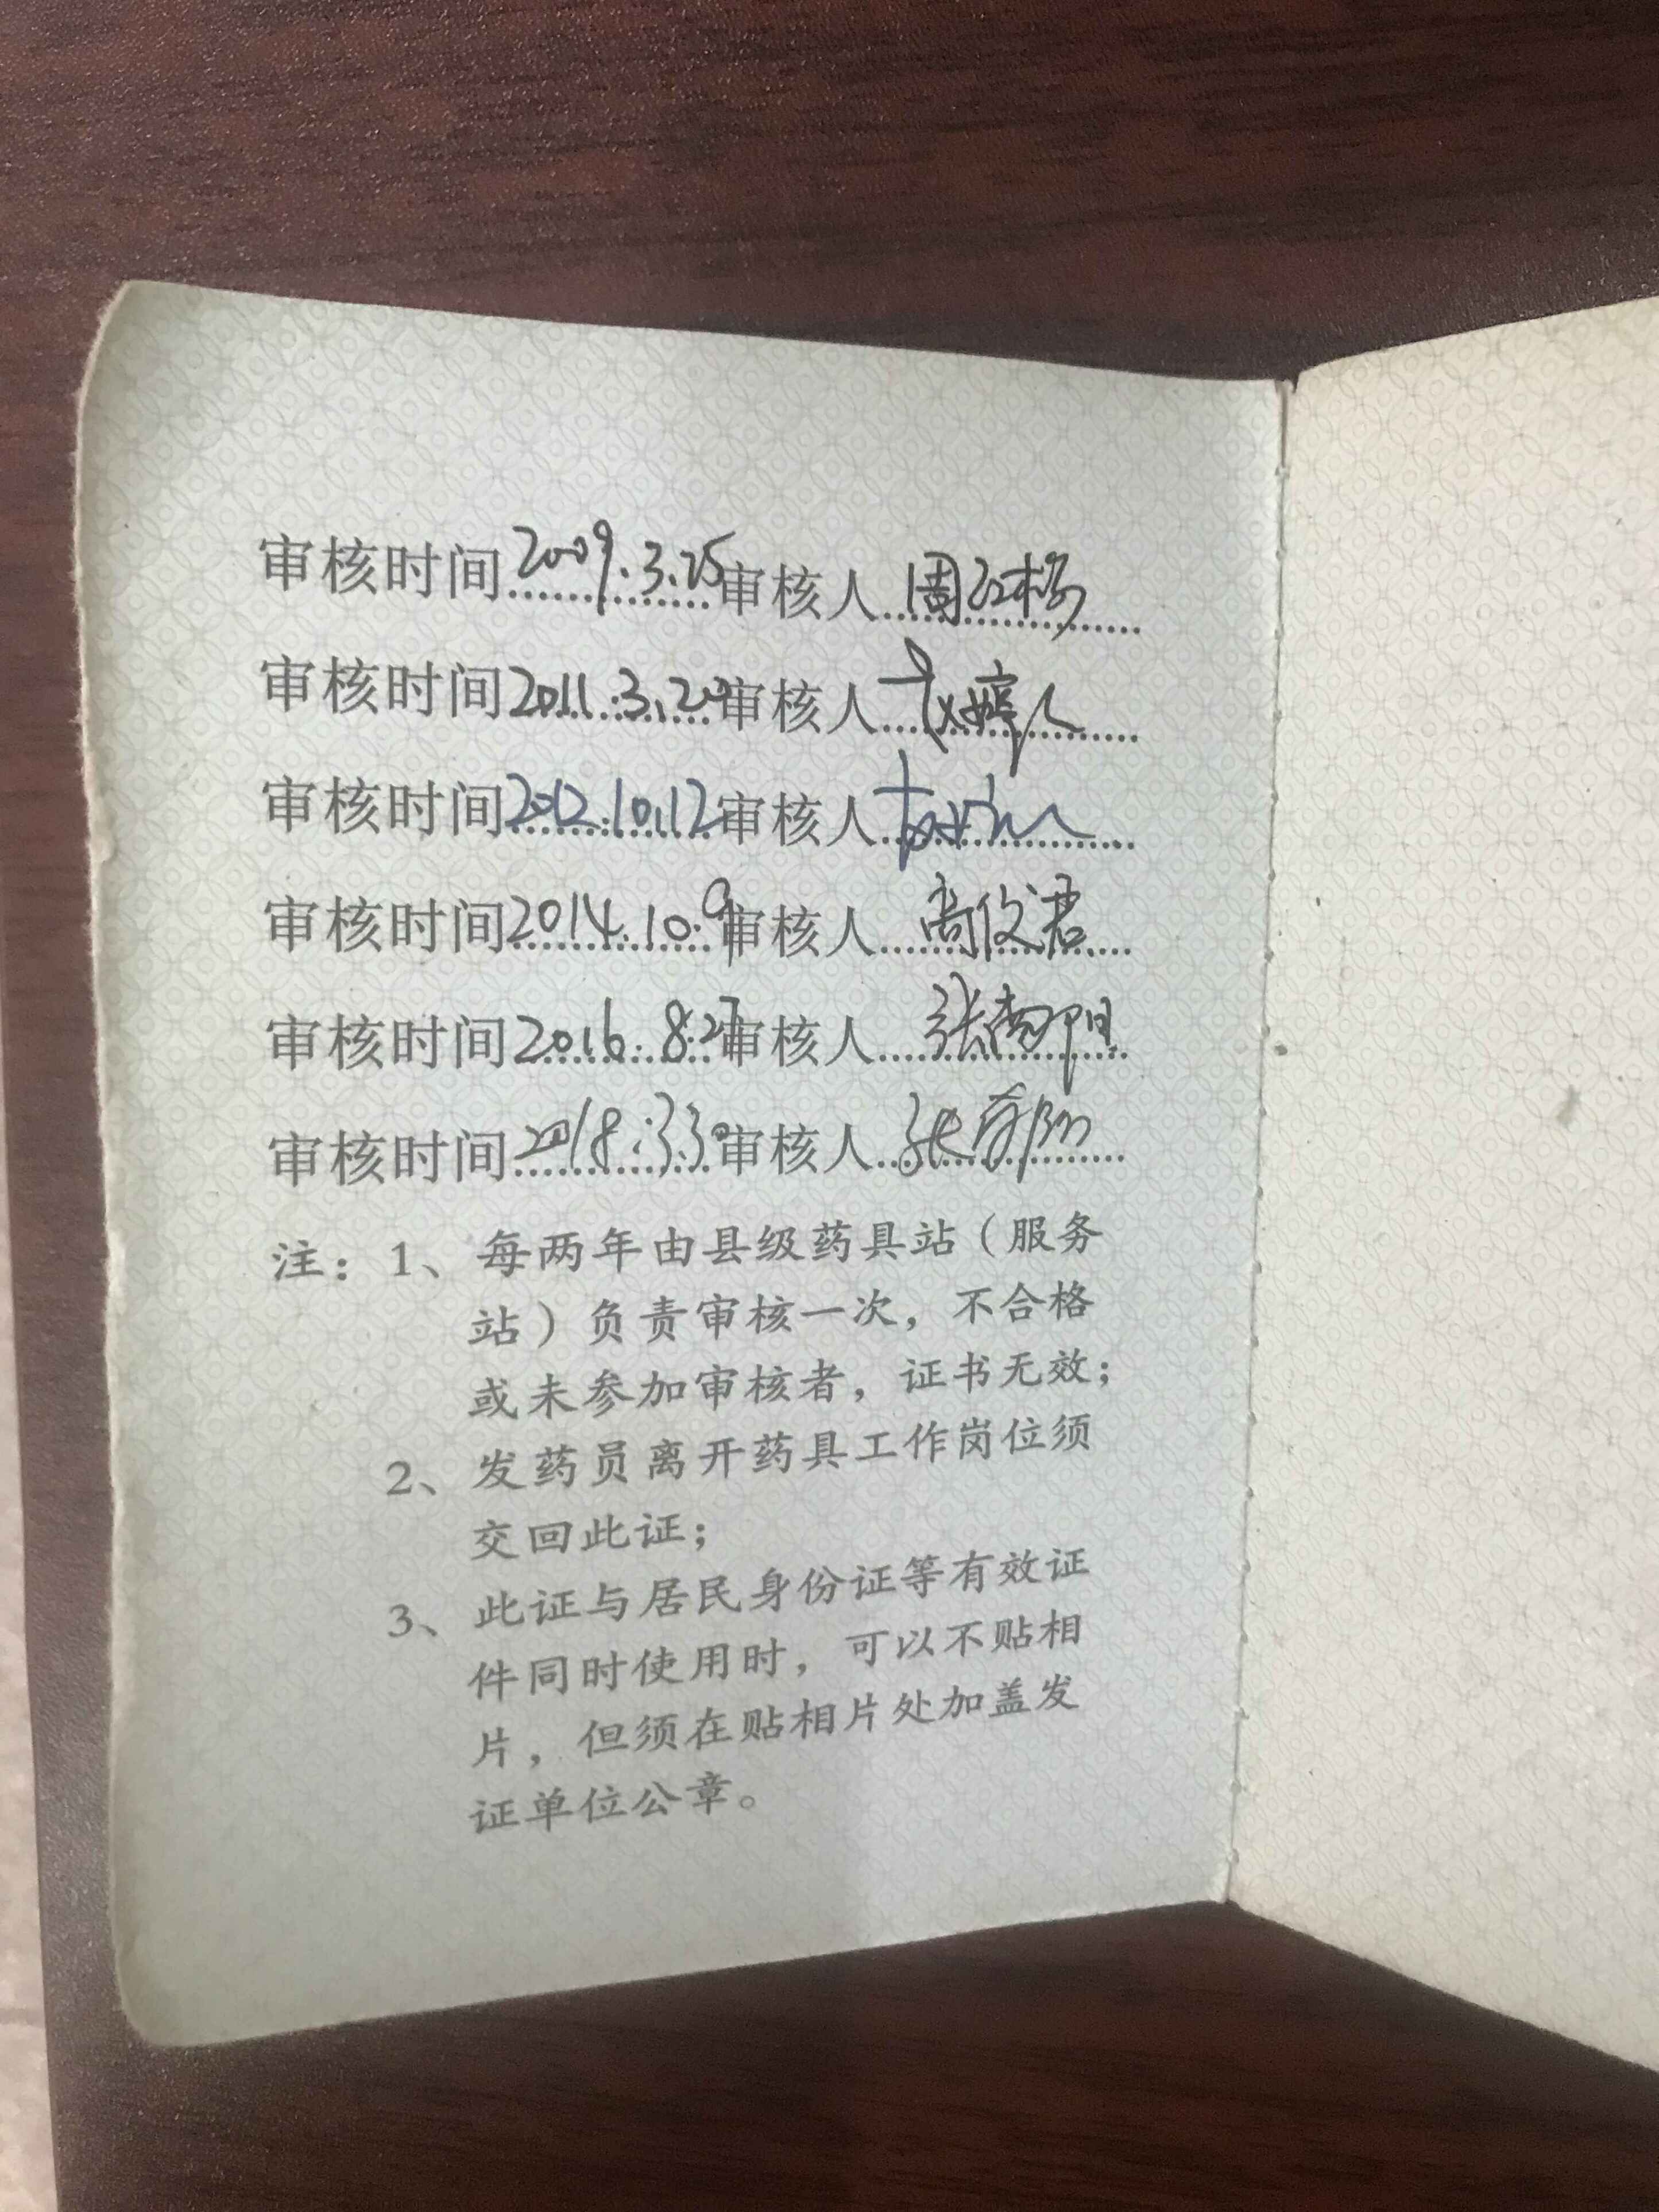 审核时间2009.3.25审核人周红梅
审核时间2011.3.审核人
审核时间2012.10.12审核人
审核时间2014.10.9审核人高俊君
审核时间2016.8.27审核人张南阳
审核时间2018.3.30审核人张
注：1、每两年由县级药具站（服务
站）负责审核一次，不合格
或未参加审核者，证书无效；
2、发药员离开药具工作岗位须
交回此证；
3、此证与居民身份证等有效证
件同时使用时，可以不贴相
片，但须在贴相片处加盖发
证单位公章。